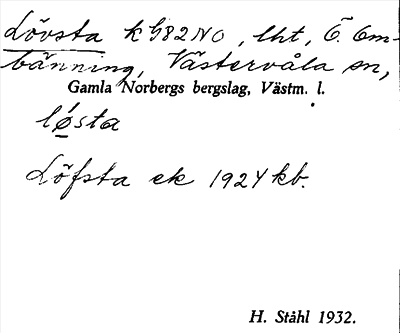 Lövsta k G82NO, lht, Ö. Om-
bänning, Västervåla sn,
Gamla Norbergs bergslag, Västm. l.
lǿsta
Löfsta ek 1924 kb.
H. Ståhl 1932.